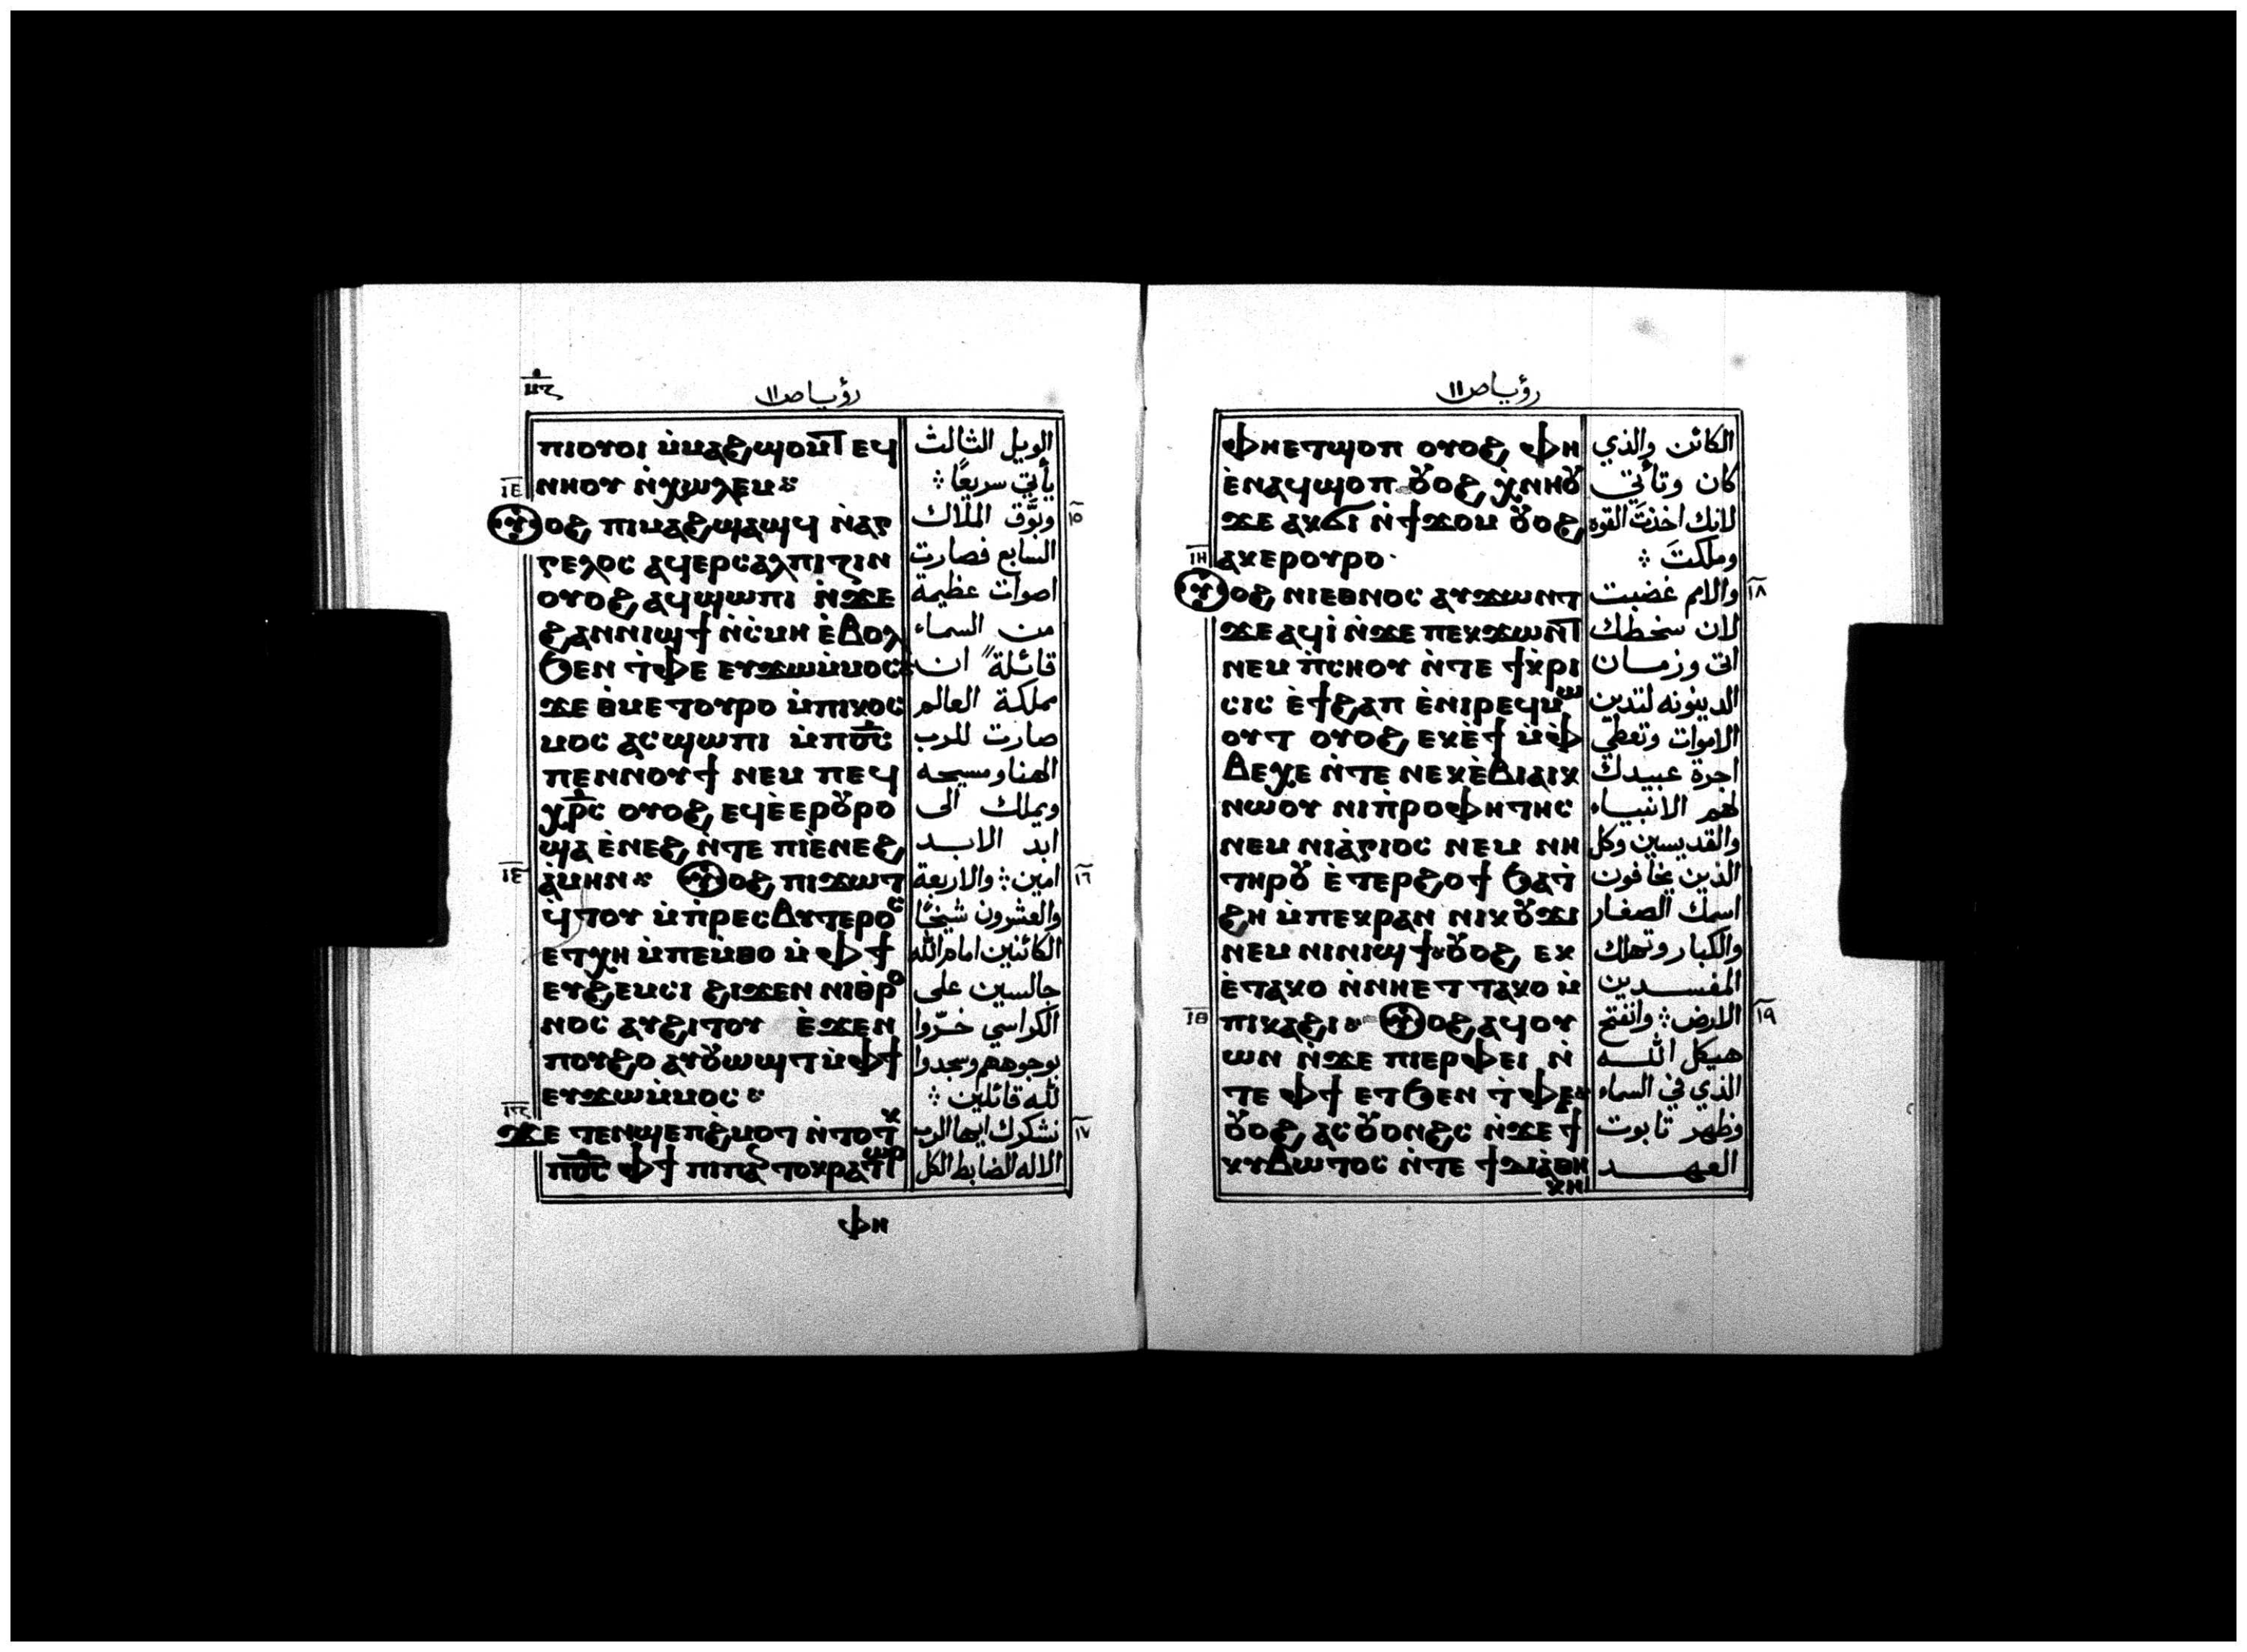 رؤيا ص ١١
ⲡⲓⲟⲩⲟⲓ ⲙ̀ⲙⲁϩϣⲟⲙ̅ⲧ̅ ⲉϥ
ⲛⲏⲟⲩ ⲛ̀ⲭⲱⲗⲉⲙ
ⲟⲩⲟϩ ⲡⲓⲙⲁϩϣⲁϣϥ ⲛ̀ⲁⲅ
ⲅⲉⲗⲟⲥ ⲁϥⲉⲣⲥⲁⲗⲡⲓⲍⲓⲛ
ⲟⲩⲟϩ ⲁϥϣⲱⲡⲓ ⲛ̀ϫⲉ
ϩⲁⲛⲛⲓϣϯ ⲛ̀ⲥ̀ⲙⲏ ⲉ̀ⲃⲟⲗ
ϧⲉⲛ ⲧ̀ⲫⲉ ⲉⲩϫⲱⲙ̀ⲙⲟⲥ
ϫⲉ ⲑ̀ⲙⲉⲧⲟⲩⲣⲟ ⲙ̀ⲡⲓⲕⲟⲥ
ⲙⲟⲥ ⲁⲥϣⲱⲡⲓ ⲙ̀ⲡⲟ̅ⲥ̅
ⲡⲉⲛⲛⲟⲩϯ ⲛⲉⲙ ⲡⲉϥ
ⲭⲣ̅ⲥ ⲟⲩⲟϩ ⲉϥⲉ̀ⲉⲣⲟⲩⲣⲟ
ϣⲁ ⲉ̀ⲛⲉϩ ⲛ̀ⲧⲉ ⲡⲓⲉ̀ⲛⲉϩ
ⲁ̀ⲙⲏⲛ ⲟⲩⲟϩ ⲡⲓϫⲱⲧ
ϥ̀ⲧⲟⲩ ⲙ̀ⲡ̀ⲣⲉⲥⲃⲩⲧⲉⲣⲟⲥ
ⲉⲧⲭⲏ ⲙ̀ⲡⲉⲙ̀ⲑⲟ ⲙ̀ⲫϯ
ⲉⲩϩⲉⲙⲥⲓ ϩⲓϫⲉⲛ ⲛⲓⲑⲣⲟ
ⲛⲟⲥ ⲁⲩϩⲓⲧⲟⲩ ⲉ̀ϫⲉⲛ
ⲡⲟⲩϩⲟ ⲁⲩⲟⲩⲱϣⲧ ⲙ̀ⲫϯ
ⲉⲩϫⲱⲙ̀ⲙⲟⲥ
ϫⲉ ⲧⲉⲛϣⲉⲡϩ̀ⲙⲟⲧ ⲛ̀ⲧⲟⲧⲕ
ⲡⲟ̅ⲥ̅ ⲫϯ ⲡⲓⲡⲁⲛⲧⲟⲕⲣⲁⲧⲱⲣ
ⲫⲏ
الويل الثالث
يأتي سريعًا
١٥ وبوَّق الملاك
السابع فصارت
اصوات عظيمة
من السماء
قائلة ان
مملكة العالم
صارت للرب
الهنا ومسيحه
ويملك الى
ابد الابد
امين والاربعة ١٦
والعشرون شيخًا
الكائنين امام الله
جالسين على
الكراسي خرّوا
بوجوههم وسجدوا
لله قائلين
١٧ نشكرك ايها الرب
الاله الضابط الكل
رؤيا ص ١١
ⲫⲏⲉⲧϣⲟⲡ ⲟⲩⲟϩ ⲫⲏ
ⲉ̀ⲛⲁϥϣⲟⲡ ⲟⲩⲟϩ ⲭ̀ⲛⲏⲟⲩ
ϫⲉ ⲁⲕϭⲓ ⲛ̀ϯϫⲟⲙ ⲟⲩⲟϩ
ⲁⲕⲉⲣⲟⲩⲣⲟ
ⲟⲩⲟϩ ⲛⲓⲉⲑⲛⲟⲥ ⲁⲩϫⲱⲛⲧ
ϫⲉ ⲁϥⲓ̀ ⲛ̀ϫⲉ ⲡⲉⲕϫⲱⲛⲧ
ⲛⲉⲙ ⲡ̀ⲥⲏⲟⲩ ⲛ̀ⲧⲉ ϯⲕ̀ⲣⲓ
ⲥⲓⲥ ⲉ̀ϯϩⲁⲡ ⲉ̀ⲛⲓⲣⲉϥⲙⲱ
ⲟⲩⲧ ⲟⲩⲟϩ ⲉⲕⲉ̀ϯ ⲙ̀ⲫ
ⲃⲉⲭⲉ ⲛ̀ⲧⲉ ⲛⲉⲕⲉ̀ⲃⲓⲁⲓⲕ
ⲛⲱⲟⲩ ⲛⲓⲡ̀ⲣⲟⲫⲏⲧⲏⲥ
ⲛⲉⲙ ⲛⲓⲁ̀ⲅⲓⲟⲥ ⲛⲉⲙ ⲛⲏ
ⲧⲏⲣⲟⲩ ⲉ̀ⲧⲉⲣϩⲟϯ ϧⲁⲧ̀
ϩⲏ ⲙ̀ⲡⲉⲕⲣⲁⲛ ⲛⲓⲕⲟⲩϫⲓ
ⲛⲉⲙ ⲛⲓⲛⲓϣϯ ⲟⲩⲟϩ ⲉⲕ
ⲉ̀ⲧⲁⲕⲟ ⲛ̀ⲛⲏⲉⲧ ⲧⲁⲕⲟ ⲙ̀
ⲡⲓⲕⲁϩⲓ ⲟⲩⲟϩ ⲁϥⲟⲩ
ⲱⲛ ⲛ̀ϫⲉ ⲡⲓⲉⲣⲫⲉⲓ ⲛ̀
ⲧⲉ ⲫϯ ⲉⲧϧⲉⲛ ⲧ̀ⲫⲉ
ⲟⲩⲟϩ ⲁⲥⲟⲩⲟⲛϩⲥ ⲛ̀ϫⲉ ϯ
ⲕⲩⲃⲱⲧⲟⲥ ⲛ̀ⲧⲉ ϯⲇⲓⲁ̀ⲑⲏ
ⲕⲏ
الكائن والذي
كان وتأتي
لانك اخذتَ القوه
وملكتَ
١٨ والامم غضبت
لان سخطك
اتى وزمان
الدينونه لتدين
الاموات وتعطي
اجرة عبيدك
لهم الانبياء
والقديسين وكل
الذين يخافون
اسمك الصغار
والكبار وتهلك
المفسدين
الارض وانفتح ١٩
هيكل الله
الذي في السماء
وظهر تابوت
العهد